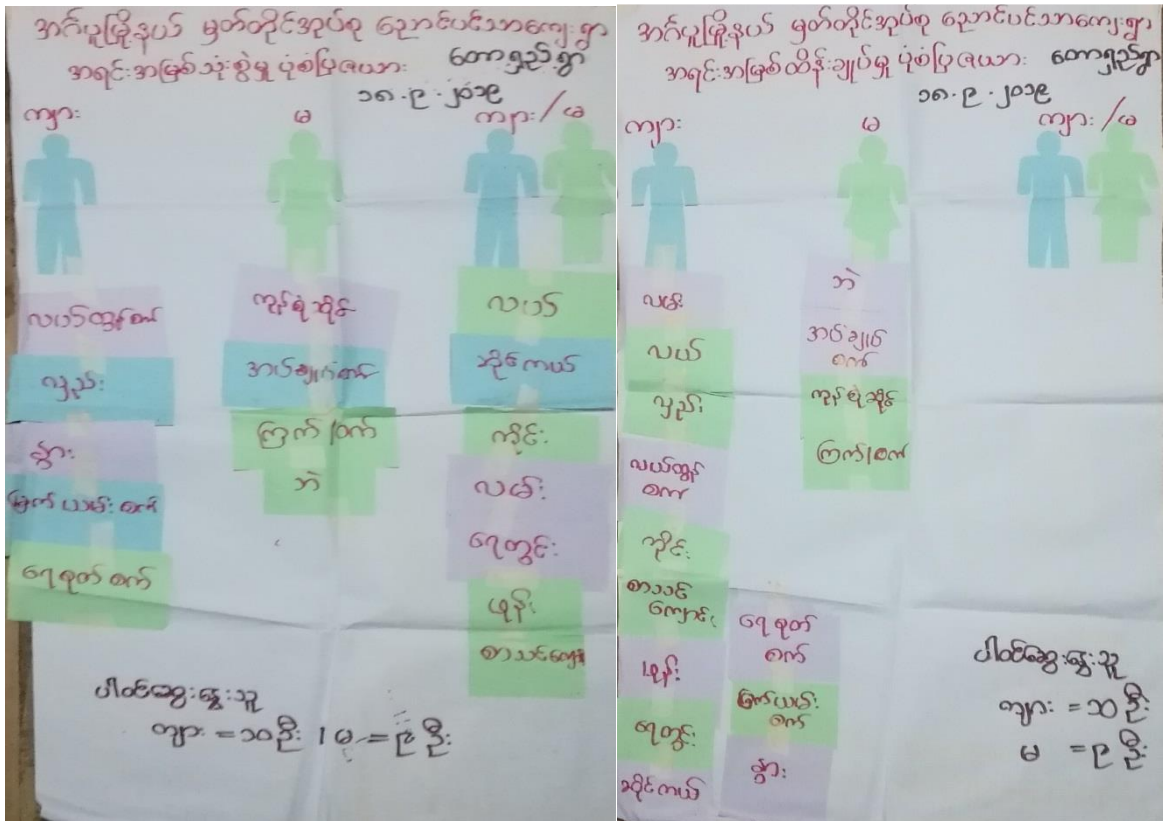 အင်္ဂပူမြို့နယ် မှတ်တိုင်အုပ်စု ညောင်ပင်သာကျေးရွာ
အရင်းအမြစ်သုံးစွဲမှု ပုံစံပြဇယား တောရှည်ရွာ
၁၈.၉.၂၀၁၉
ကျား
မ
ကျား/မ
လယ်ထွန်စက်
လှည်း
နွား
မြက်ယမ်းစက်
ရေစုတ်စက်
ကုန်စုံဆိုင်
အပ်ချုပ်စက်
ကြက်/ဝက်
ဘဲ
လယ်
ဆိုင်ကယ်
ကိုင်း
လမ်း
ရေတွင်း
ဖုန်း
စာသင်ကျောင်း
ပါဝင်ဆွေးနွေးသူ
ကျား = ၁၀ ဦး ၊ မ = ၉ ဦး
အင်္ဂပူမြို့နယ် မှတ်တိုင်အုပ်စု ညောင်ပင်သာကျေးရွာ
အရင်းအမြစ်ထိန်းချုပ်မှု ပုံစံပြဇယား တောရှည်ရွာ
၁၈.၉.၂၀၁၉
ကျား
မ
ကျား/မ
လမ်း
လယ်
လှည်း
လယ်ထွန်
စက်
ကိုင်း
စာသင်
ကျောင်း
ဖုန်း
ရေတွင်း
ဆိုင်ကယ်
ရေစုတ်
စက်
မြက်ယမ်း
စက်
နွား
ဘဲ
အပ်ချုပ်
စက်
ကုန်စုံဆိုင်
ကြက်/ဝက်
ပါဝင်ဆွေးနွေးသူ
ကျား = ၁၀ ဦး
မ = ၉ ဦး